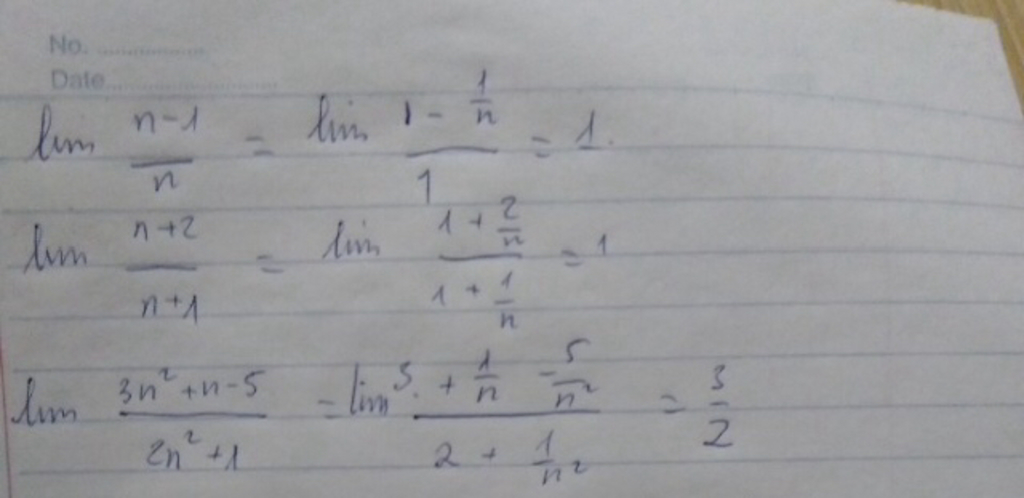 No. ..................
Date..............................
lim (n-1)/n = lim (1 - 1/n)/1 = 1.
lim (n+2)/(n+1) = lim (1 + 2/n)/(1 + 1/n) = 1
lim (3n²+n-5)/(2n²+1) = lim (3 + 1/n - 5/n²)/(2 + 1/n²) = 3/2